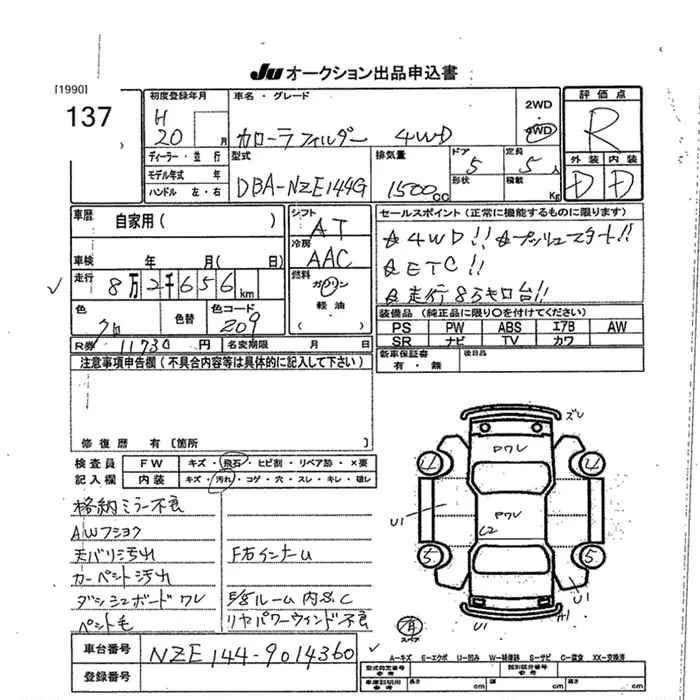 Ju オークション出品申込書
[1990]
137
初度登録年月
H
20 月
車名・グレード
カローラフィルダー 4WD
2WD
4WD
評価点
R
外装 内装
D D
ディーラー・並行
モデル年式 年
ハンドル 左・右
型式
DBA-NZE144G
排気量
1500cc
ドア
5
形状
定員
5人
積載
Kg
車歴
自家用( )
シフト
AT
車検 年 月( 日)
冷房
AAC
走行
8万2千656km
燃料
ガソリン
軽油
( )
色
クロ
色替
色コード
209
R券 11730円
名変期限 月 日
セールスポイント(正常に機能するものに限ります)
☆4WD!! ☆プッシュスタート!!
☆ETC!!
☆走行8万キロ台!!
装備品(純正品に限り○を付けてください)
PS PW ABS エアB AW
SR ナビ TV カワ
新車保証書
有・無
後日品
注意事項申告欄(不具合内容等は具体的に記入して下さい)
修復歴 有〔箇所 〕
検査員
記入欄
FW キズ・飛石・ヒビ割・リペア跡・×要
内装 キズ・汚れ・コゲ・穴・スレ・キレ・破レ
格納ミラー不良
AWフショク
天バリ汚れ
F右インナーU
カーペット汚れ
ダッシュボードワレ
F/Sルーム内S.C
ペット毛
リヤパワーウィンド不良
ズレ
Pワレ
4 4
U1
Pワレ
U2
5 5
U1
U1
A1
有
スペアキー
車台番号
NZE144-9014360
登録番号
A-キズ E-エクボ U-凹み W-補修跡 S-サビ C-腐食 XX-交換済
型式指定番号
参考
類別区分番号
参考
車庫証明用
参考
長さ cm 幅 cm 高さ cm